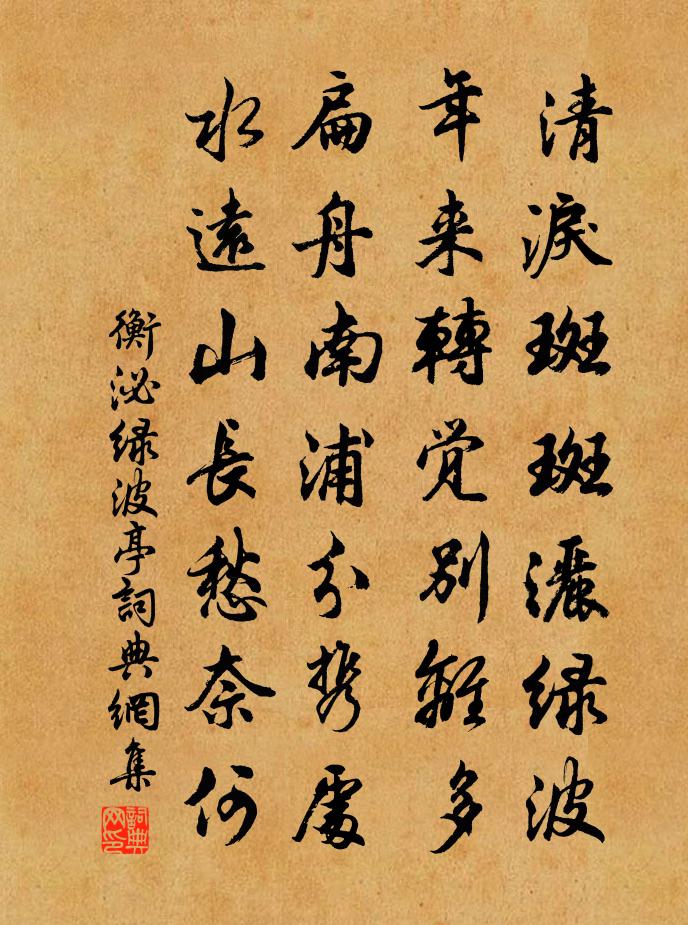 清淚斑斑灑緑波
年来轉覺別離多
扁舟南浦分携處
水遠山長愁奈何
衡泌緑波亭詞典網集
詞典网印